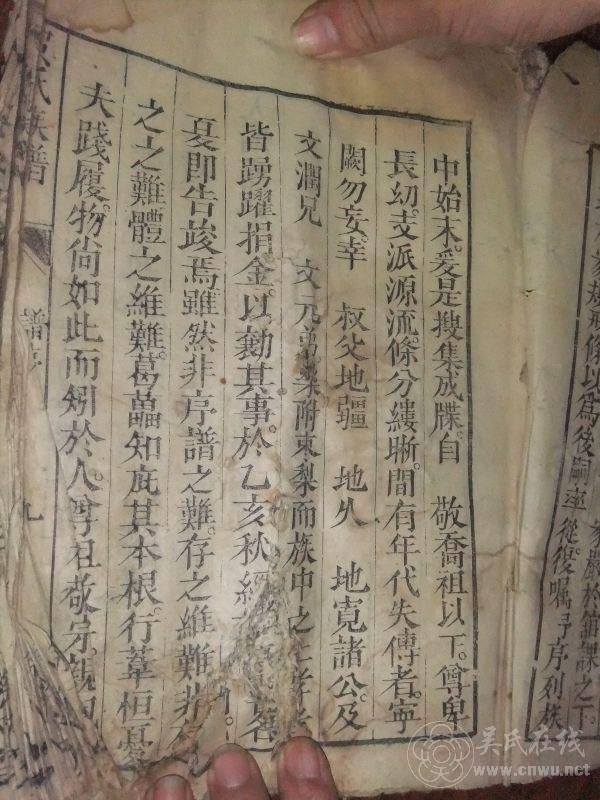 從復囑予序列族
家嚴於舘課之下
家規戒條以為後嗣率
中始末爰是搜集成牒自 敬喬祖以下尊卑
長幼支派源流條分縷晰間有年代失傳者寧
闕勿妄幸 叔父地疆 地久 地寬諸公及
文潤兄 文元弟 附東梨而族中之
皆踴躍捐金以勷其事於乙亥秋經
夏即告竣焉雖然非序譜之難存之維難非存
之之難體之維難葛藟知庇其本根行葦桓
夫踐履物尙如此而矧於人尊祖敬宗
氏族譜
譜序
九
吳氏在线
www.cnwu.net